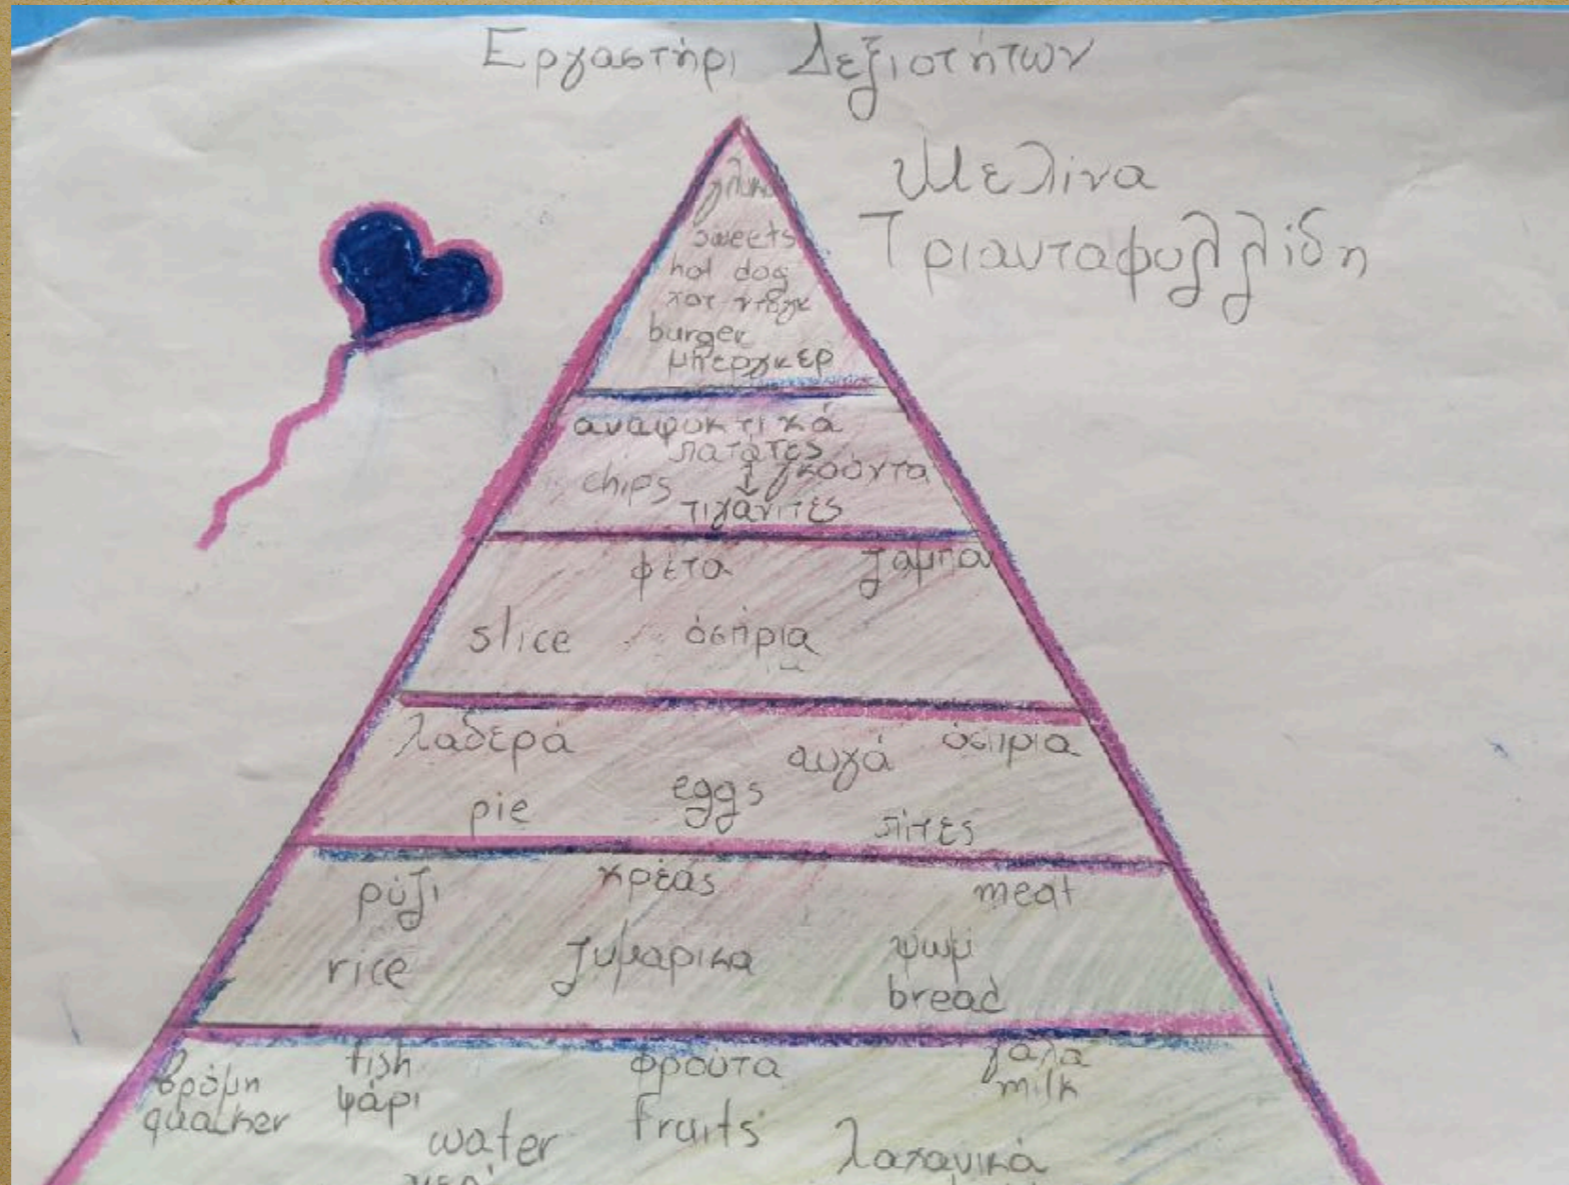 Εργαστήρι Δεξιοτήτων
Μελίνα
Τριανταφυλλίδη
γλυκά
sweets
hot dog
χοτ ντογκ
burger
μπέργκερ
αναψυκτικά
πατάτες
chips γκούντα
τιγανιτές
φέτα ζαμπόν
slice όσπρια
λαδερά αυγά όσπρια
pie eggs πίτες
ρύζι κρέας meat
rice ζυμαρικα ψωμί
bread
βρώμη fish φρούτα γάλα
quacker ψάρι milk
water fruits λαχανικά
νερό